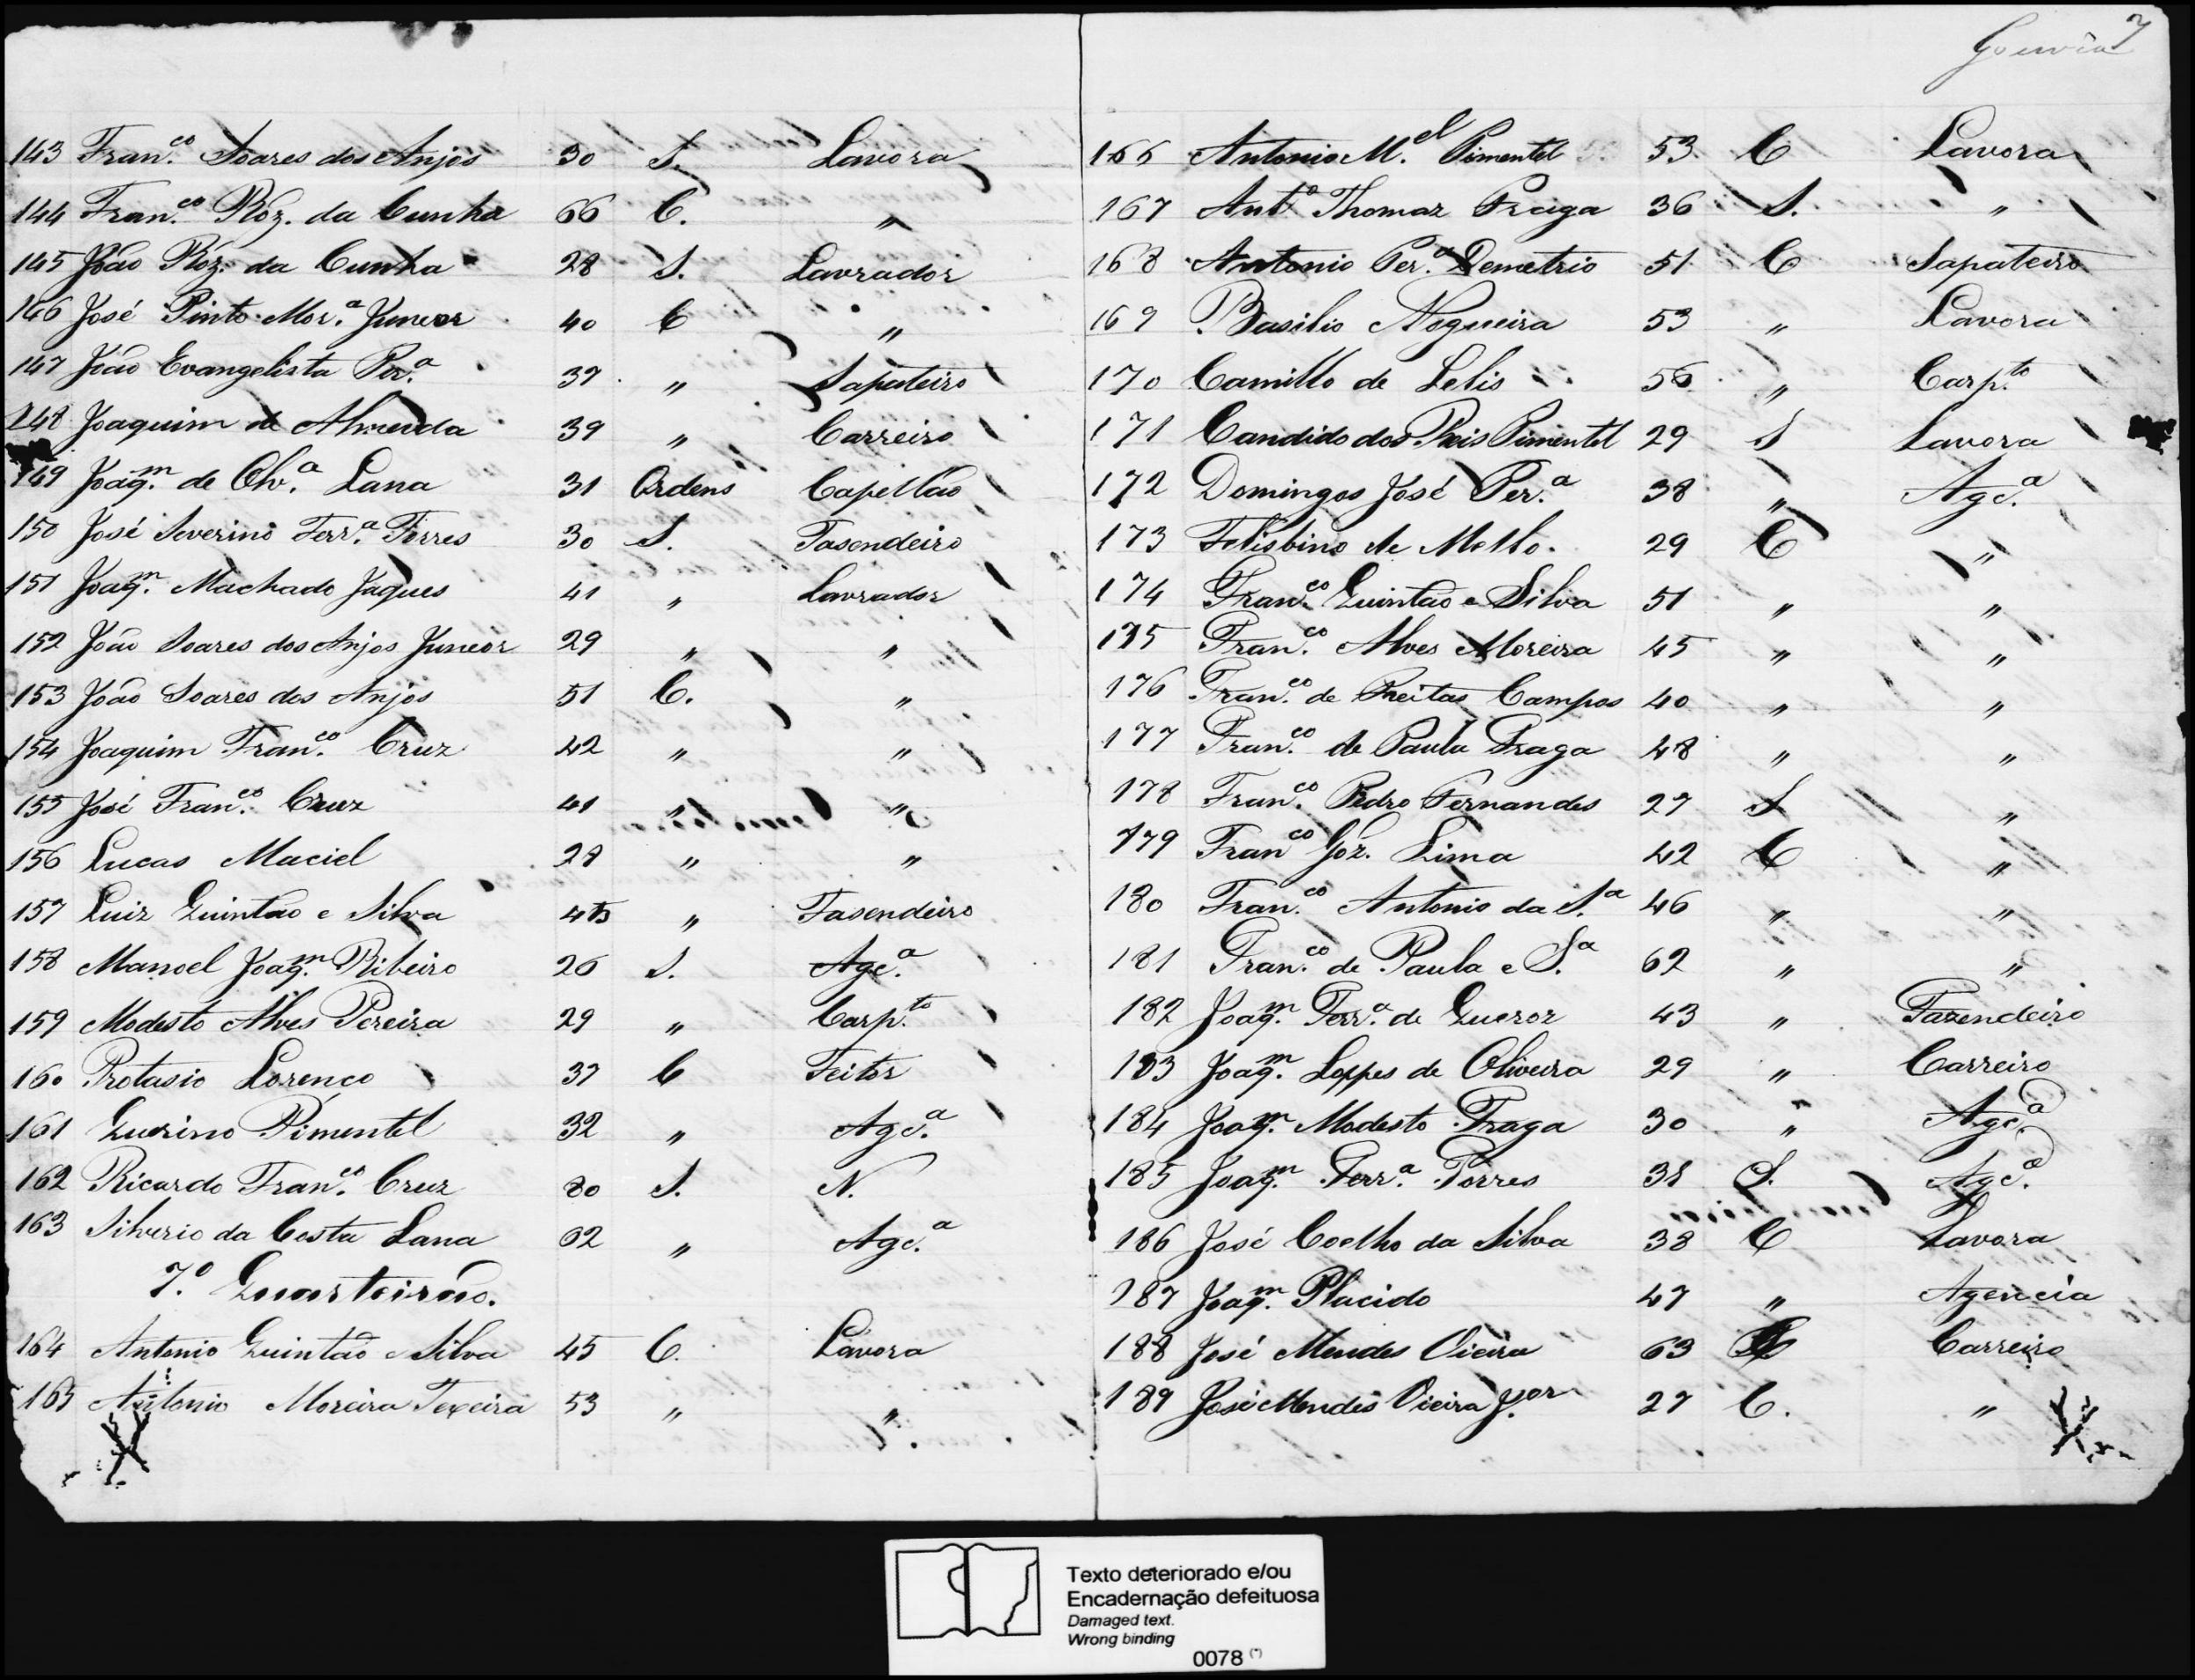 143 Fran.co Soares dos Anjos 30 S. Lavora
144 Fran.co Roz. da Cunha 66 C. "
145 João Roz. da Cunha 28 S. Lavrador
146 José Pinto Mor.a Junior 40 C "
147 João Evangelista Per.a 37 " Sapateiro
148 Joaquim de Almeida 39 " Carreiro
149 Joaq.m de Olv.a Lana 31 Ordens Capellão
150 José Severino Ferr.a Torres 30 S. Fasendeiro
151 Joaq.m Machado Jaques 41 " Lavrador
152 João Soares dos Anjos Junior 29 " "
153 João Soares dos Anjos 51 C. "
154 Joaquim Fran.co Cruz 42 " "
155 José Fran.co Cruz 41 " "
156 Lucas Maciel 28 " "
157 Luiz Quintão e Silva 45 " Fasendeiro
158 Manoel Joaq.m Ribeiro 26 S. Agc.a
159 Modesto Alves Pereira 29 " Carp.to
160 Protasio Lorenço 37 C Feitor
161 Querino Pimentel 32 " Agc.a
162 Ricardo Fran.co Cruz 80 S. N.
163 Silverio da Costa Lana 62 " Agc.a
7.o Quarteirão.
164 Antonio Quintão e Silva 45 C. Lavora
165 Antonio Moreira Texeira 53 " "
Gouvêa 7
166 Antonio M.el Pimentel 53 C Lavora
167 Ant.o Thomaz Fraga 36 S. "
168 Antonio Per.a Demetrio 51 C Sapateiro
169 Basilio Nogueira 53 " Lavora
170 Camillo de Lelis 56 " Carp.to
171 Candido dos Reis Pimentel 29 S Lavora
172 Domingos José Per.a 38 " Agc.a
173 Felisbino de Mello. 29 C "
174 Fran.co Quintão e Silva 51 " "
175 Fran.co Alves Moreira 45 " "
176 Fran.co de Freitas Campos 40 " "
177 Fran.co de Paula Fraga 48 " "
178 Fran.co Pedro Fernandes 27 S "
179 Fran.co Goz. Lima 42 C "
180 Fran.co Antonio da S.a 46 " "
181 Fran.co de Paula e S.a 62 " "
182 Joaq.m Ferr.a de Queroz 43 " Fazendeiro
183 Joaq.m Loppes de Oliveira 29 " Carreiro
184 Joaq.m Modesto Fraga 30 " Agc.a
185 Joaq.m Ferr.a Torres 38 S. Agc.a
186 José Coelho da Silva 38 C Lavora
187 Joaq.m Placido 47 " Agencia
188 José Mendes Vieira 63 Carreiro
189 José Mendes Vieira J.or 27 C. "
Texto deteriorado e/ou
Encadernação defeituosa
Damaged text.
Wrong binding
0078 (*)